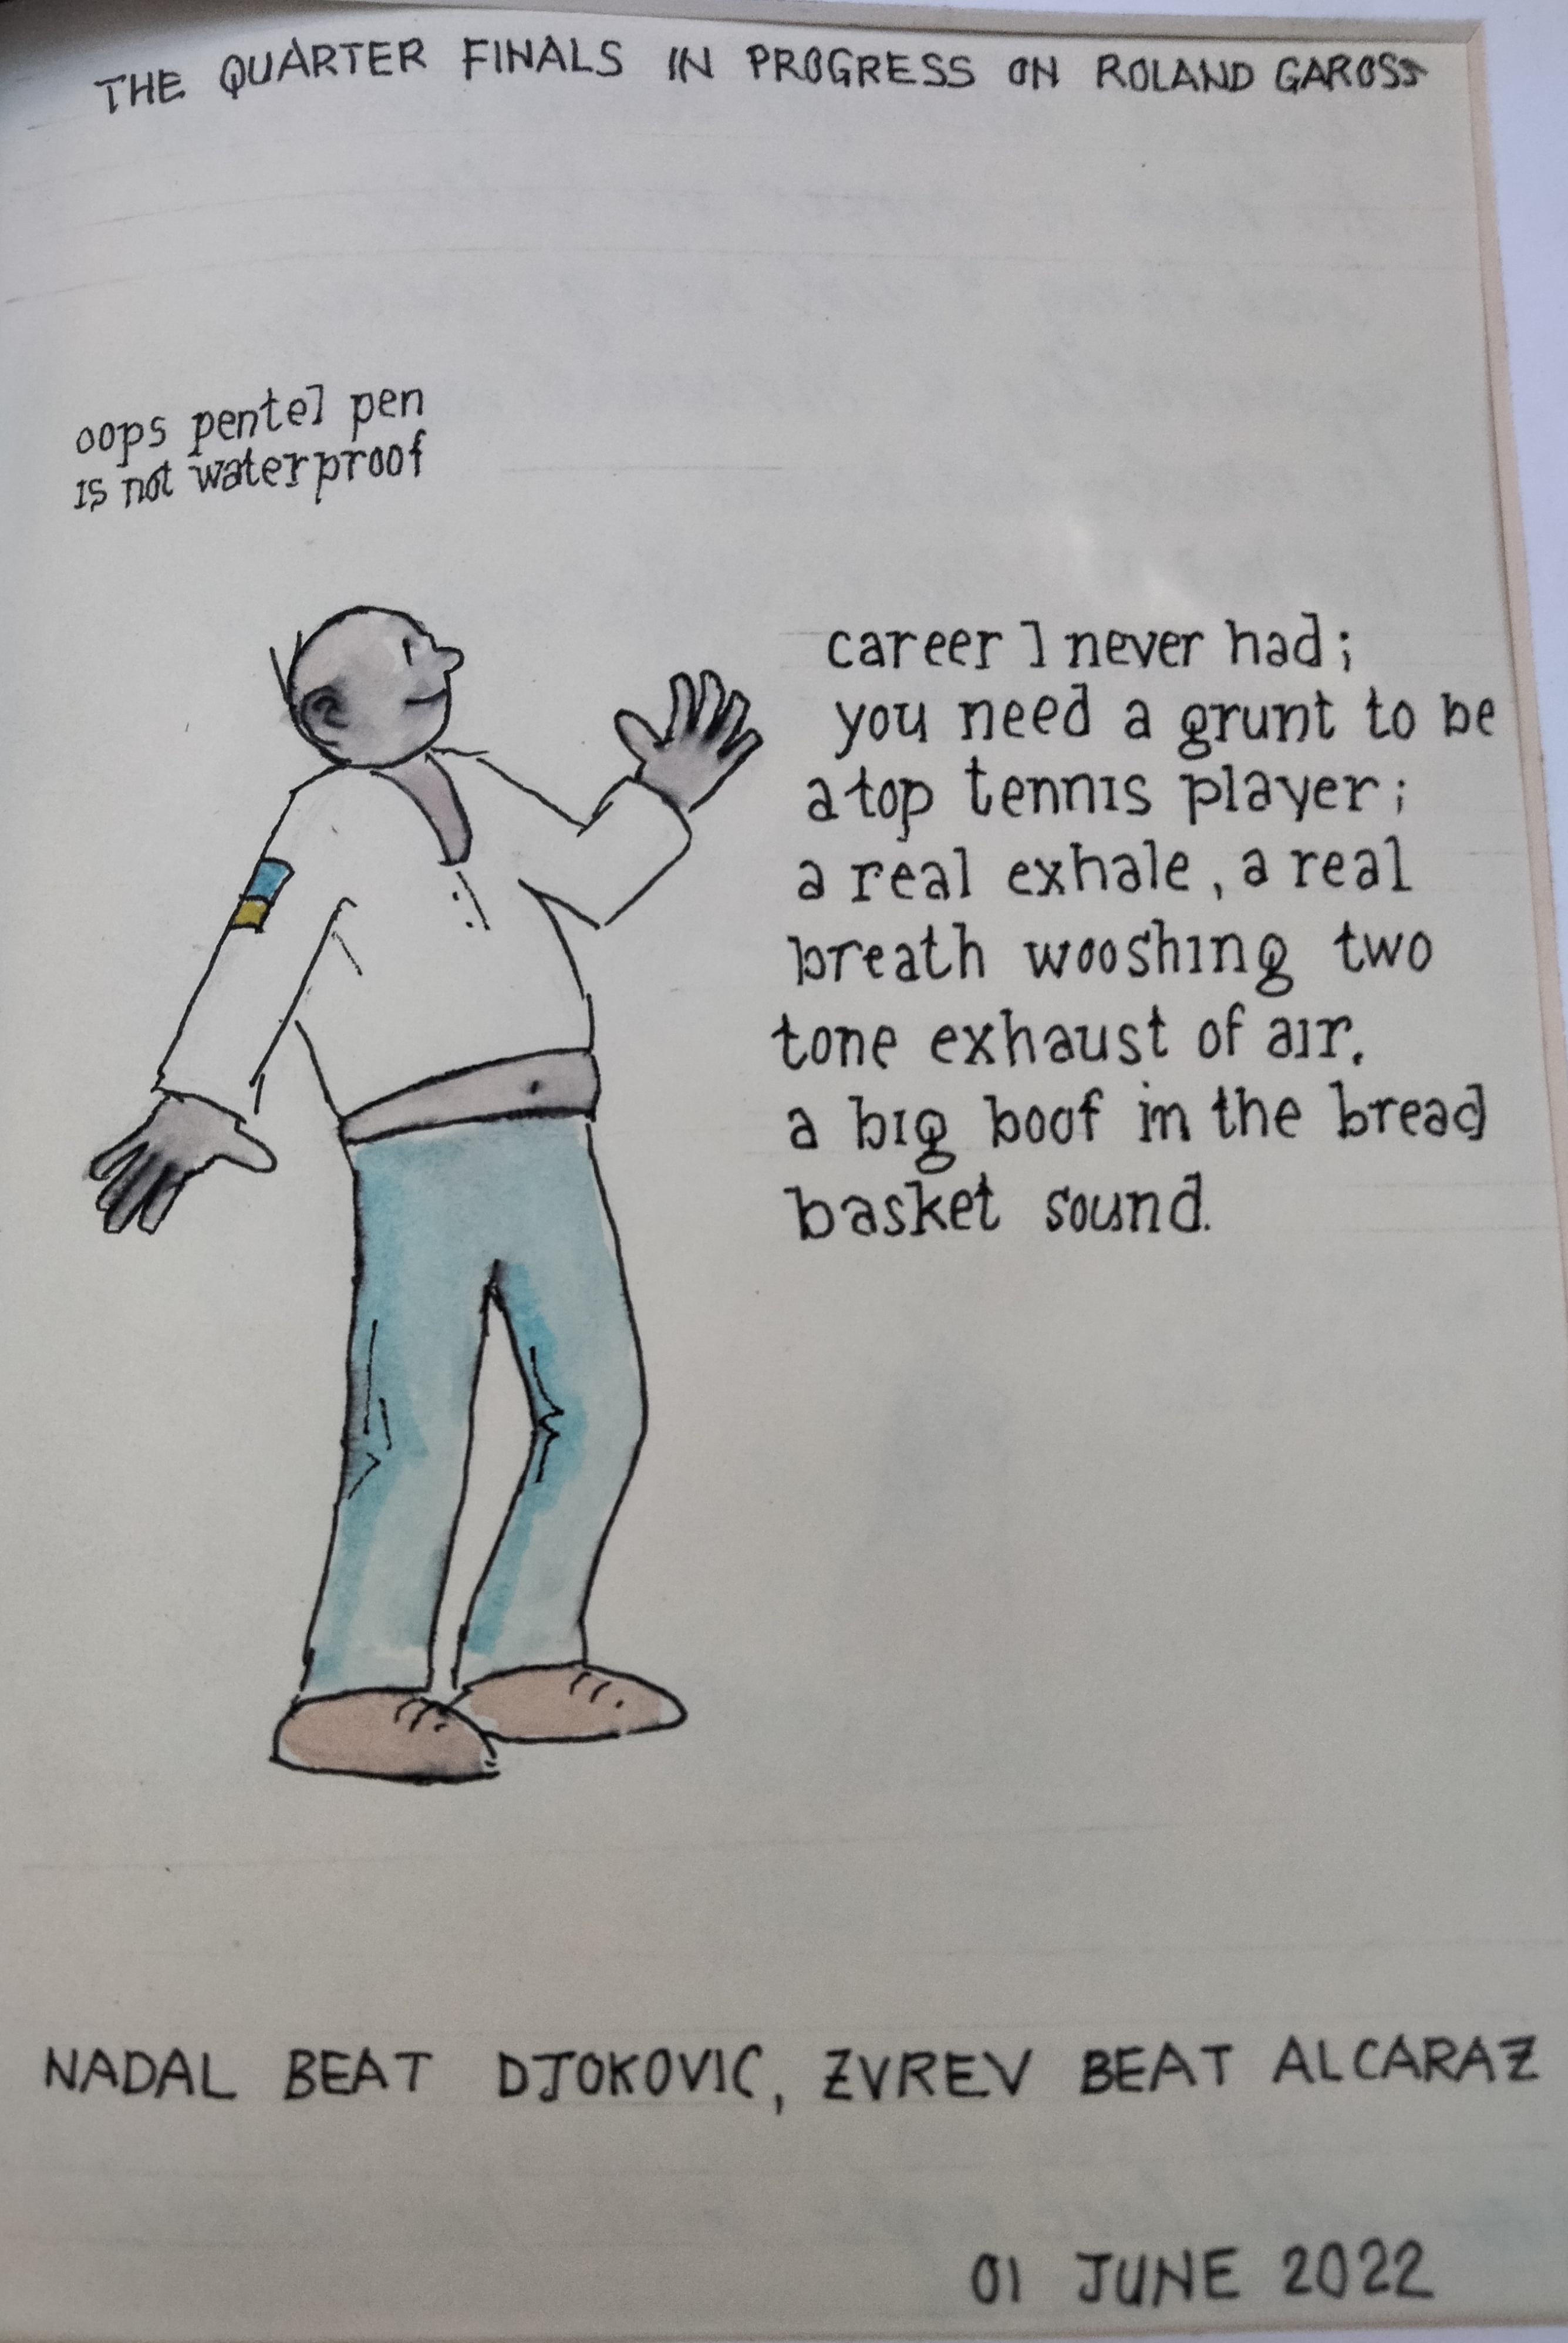 THE QUARTER FINALS IN PROGRESS ON ROLAND GAROSS
oops pentel pen
is not waterproof
career I never had;
you need a grunt to be
a top tennis player;
a real exhale, a real
breath wooshing two
tone exhaust of air.
a big boof in the bread
basket sound.
NADAL BEAT DJOKOVIC, ZVREV BEAT ALCARAZ
01 JUNE 2022